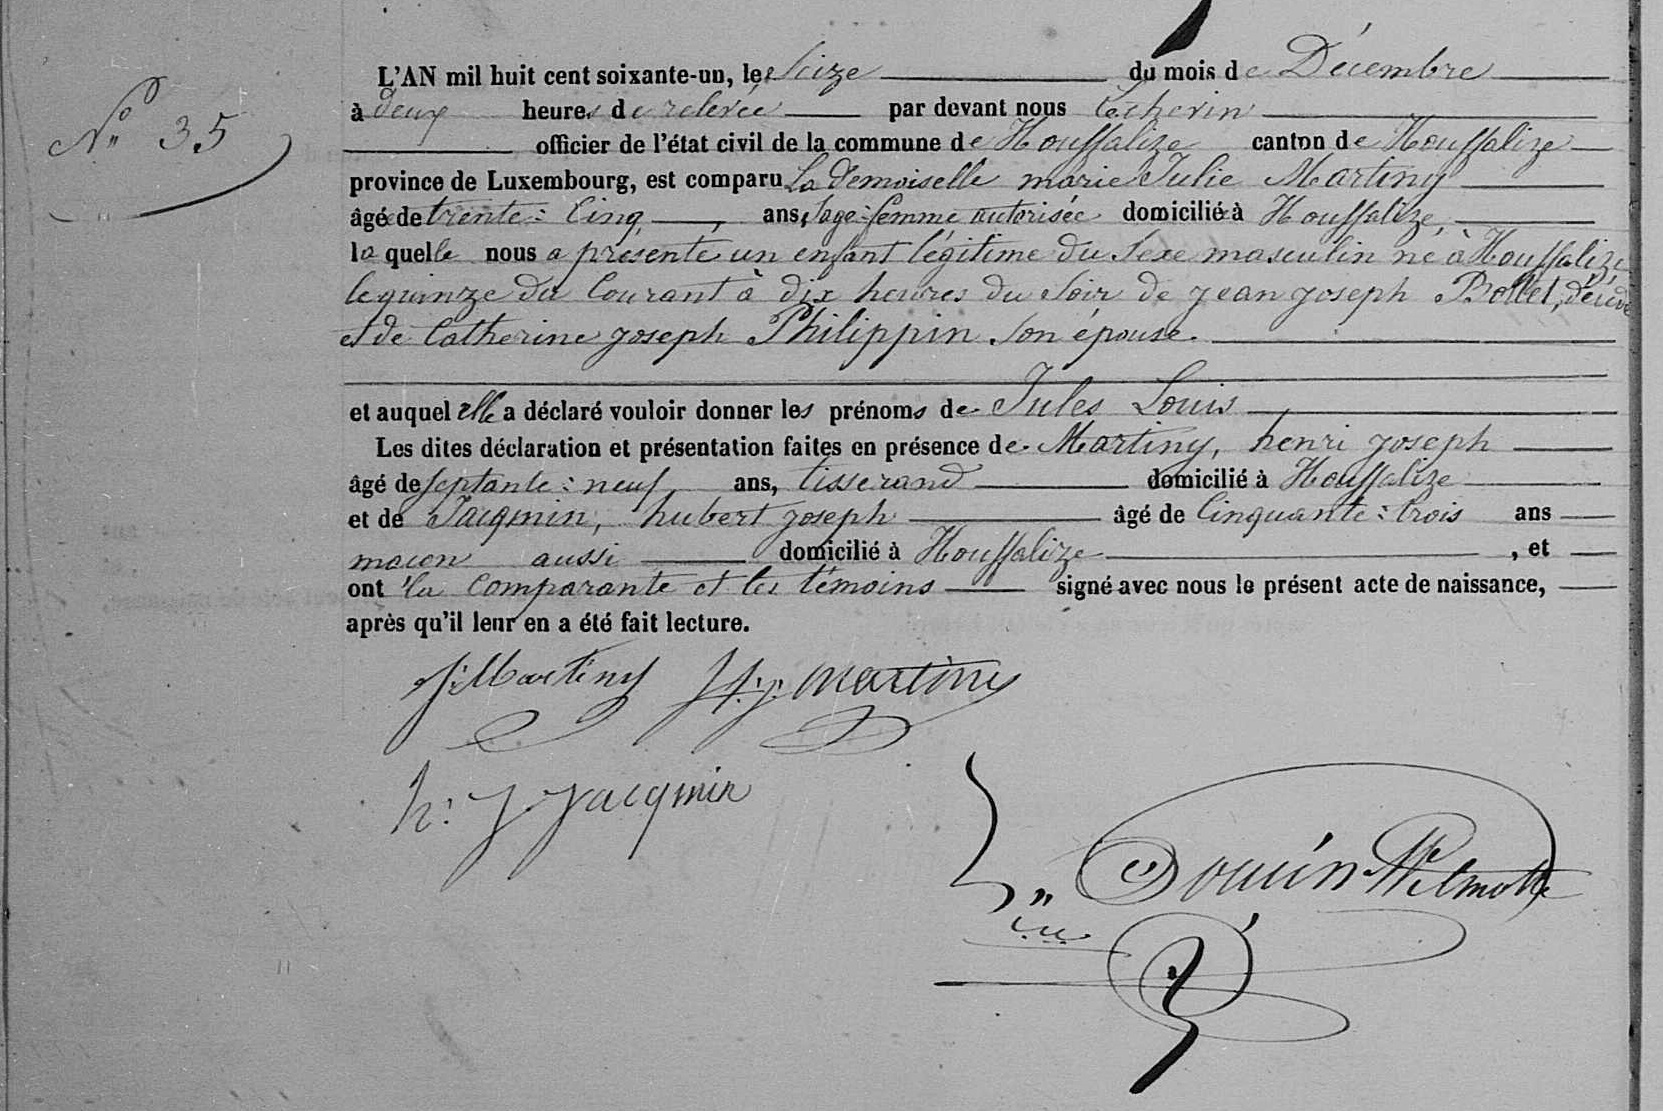 N° 35
L'AN mil huit cent soixante-un, le Seize du mois de Décembre
à deux heures de relevée par devant nous
officier de l'état civil de la commune de Houffalize canton de Houffalize
province de Luxembourg, est comparu La demoiselle marie Julie Martiny
âgée de trente: Cinq, ans, Sage: femme autorisée domiciliée à Houffalize,
laquelle nous a présenté un enfant légitime du Sexe masculin né à Houffalize
le quinze du Courant à dix heures du Soir de jean joseph
et de Catherine joseph Philippin Son épouse.
et auquel elle a déclaré vouloir donner les prénoms de Jules Louis
Les dites déclaration et présentation faites en présence de Martiny, henri joseph
âgé de septante: neuf ans, tisserand domicilié à Houffalize
et de Jacqmin, hubert joseph âgé de Cinquante: trois ans
macon aussi domicilié à Houffalize , et
ont la Comparante et les témoins signé avec nous le présent acte de naissance,
après qu'il leur en a été fait lecture.
J. Martiny H. j. Martiny
h. J Jacqmin